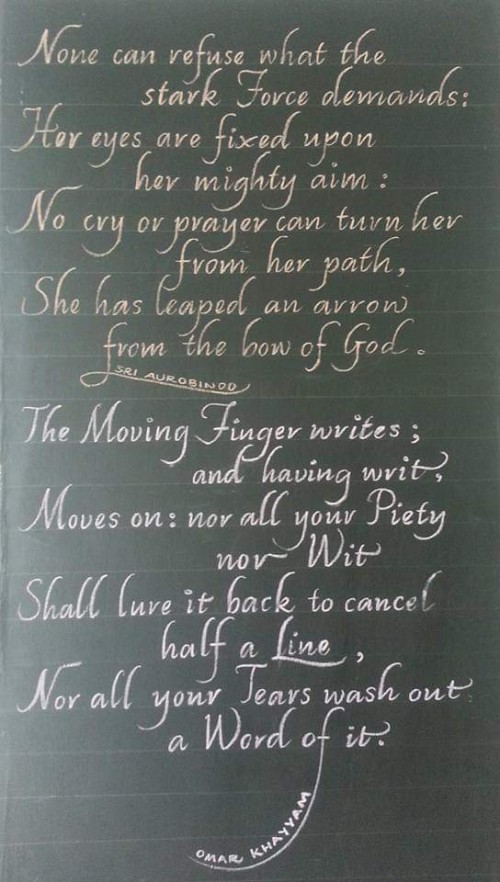 None can refuse what the
stark Force demands:
Her eyes are fixed upon
her mighty aim:
No cry or prayer can turn her
from her path,
She has leaped an arrow
from the bow of God.
SRI AUROBINDO
The Moving Finger writes;
and having writ,
Moves on: nor all your Piety
nor Wit
Shall lure it back to cancel
half a Line,
Nor all your Tears wash out
a Word of it.
OMAR KHAYYAM